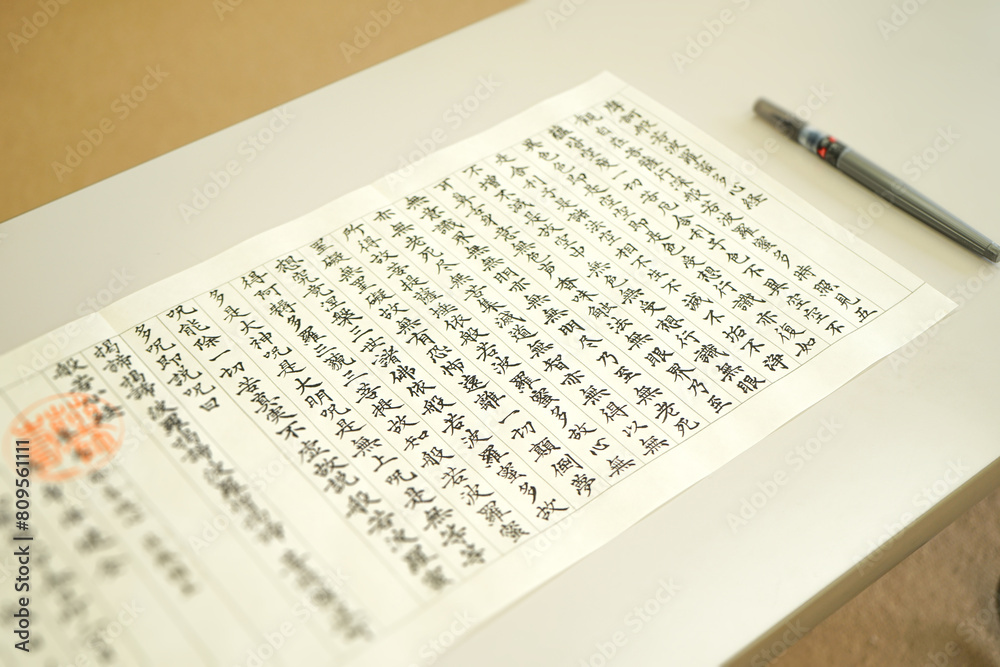 摩訶般若波羅蜜多心経
観自在菩薩行深般若波羅蜜多時照見五
蘊皆空度一切苦厄舎利子色不異空空不
異色色即是空空即是色受想行識亦復如
是舎利子是諸法空相不生不滅不垢不浄
不増不減是故空中無色無受想行識無眼
耳鼻舌身意無色声香味触法無眼界乃至
無意識界無無明亦無無明尽乃至無老死
亦無老死尽無苦集滅道無智亦無得以無
所得故菩提薩埵依般若波羅蜜多故心無
罣礙無罣礙故無有恐怖遠離一切顛倒夢
想究竟涅槃三世諸佛依般若波羅蜜多故
得阿耨多羅三藐三菩提故知般若波羅蜜
多是大神呪是大明呪是無上呪是無等等
呪能除一切苦真実不虚故説般若波羅蜜
多呪即説呪曰
掲諦掲諦波羅掲諦波羅僧掲諦菩提薩婆訶
般若心経
Adobe Stock | #809561111